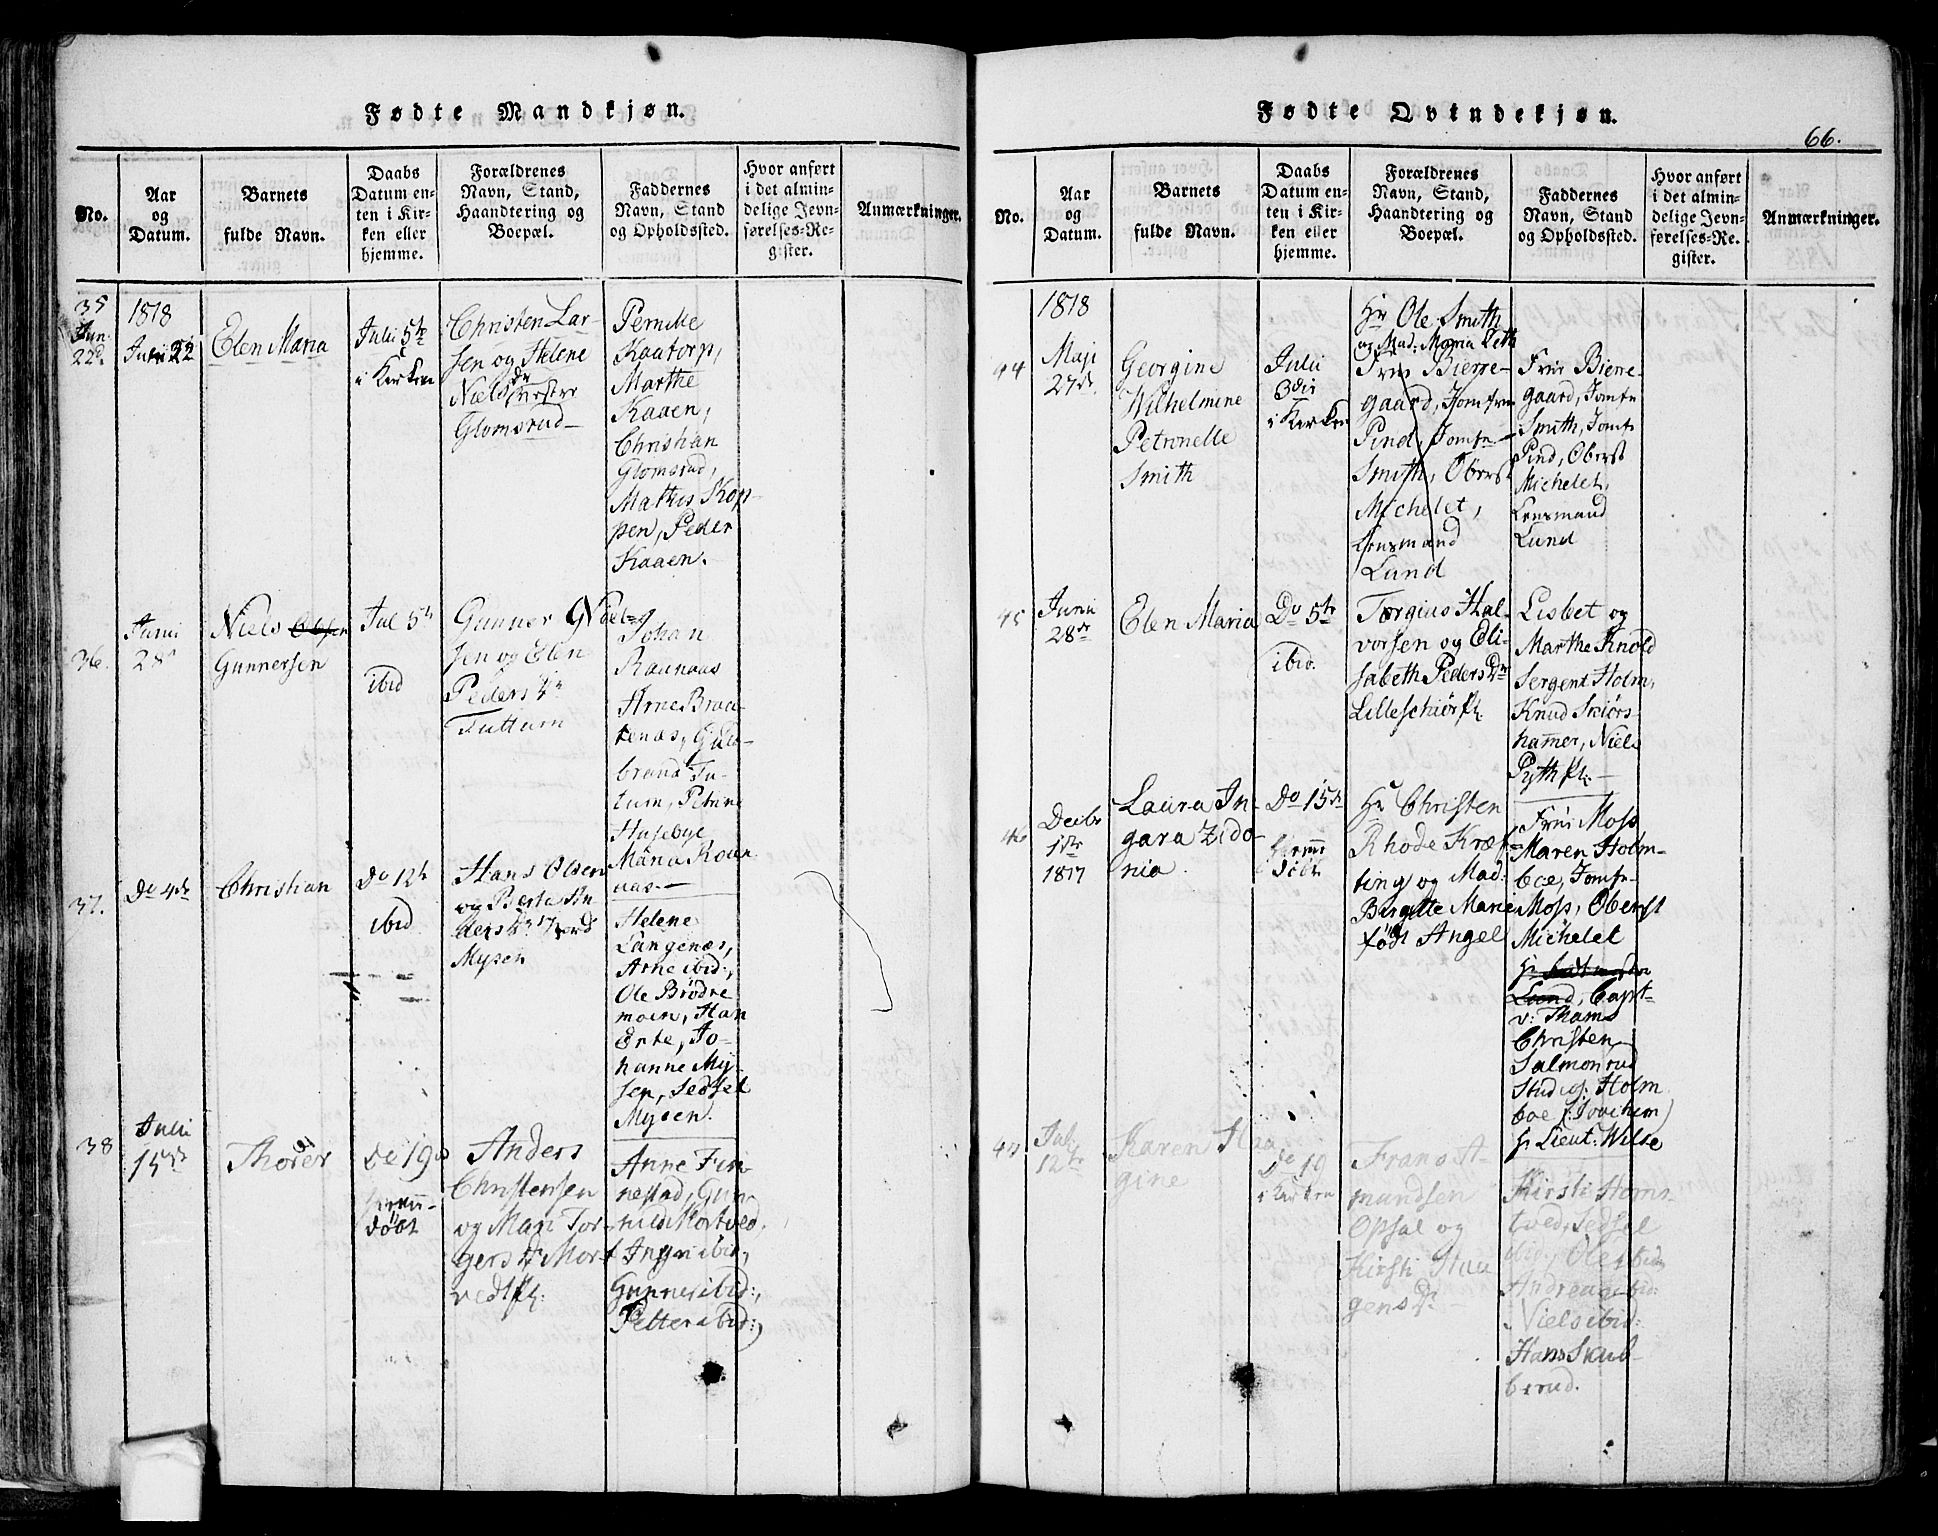 Fødte Mandkjøn.
No.
Aar
og
Datum.
Barnets
fulde Navn.
Daabs
Datum en-
ten i Kir-
ken eller
hjemme.
Forældrenes
Navn, Stand,
Haandtering og
Boepæl.
Faddernes
Navn, Stand
og Opholdssted.
Hvor anført
i det almin-
delige Jevn-
førelses-Re-
gister.
Anmærkninger.
35
Jun.
22d.
1818
Juni 22
Elen Maria
Julii 5te
i Kirken
Christen Lar-
sen og Helene
Niels dr
Glomsrud
Pernille
Kaatorp,
Marthe
Kaaen,
Christian
Glomsrud,
Mathis Kop-
pen, Peder
Kaaen.
36.
Junii
28
Niels Olsen
Gunnersen
Jul 5te
ibid
Gunner Niel-
sen og Elen
Peders Dr
Tuttum
Johan
Raunaas
Arne Braa-
tenæs, Gul-
brand Tu-
tum, Petrine
Husebye,
Maria Roun
aas.
37.
Do 4de
Christian
Do 12te
ibid
Hans Olsen
og Berte An
ders Dr
Mysen
Helene
Langenæs,
Arne ibid:,
Ole Brødre
moen, Han
Ørte, Jo-
hanne My-
sen, Sedsel
Mysen.
38
Julii
15de
Thorer
Do 19
hjemme-
døbt
Anders
Christensen
og Mari Tor-
gers Dr Mort
vedt
Anne Fin-
nestad, Gun-
nild Mortved,
Ingri ibid,
Gunner ibid:,
Petter ibid:
Fødte Qvindekjøn.
66.
No.
Aar
og
Datum.
Barnets
fulde Navn.
Daabs
Datum en-
ten i Kir-
ken eller
hjemme.
Forældrenes
Navn, Stand,
Haandtering og
Boepæl.
Faddernes
Navn, Stand
og Opholdssted.
Hvor anført
i det almin-
delige Jevn-
førelses-Re-
gister.
Anmærkninger.
44
1818
Maji
27de
Georgine
Wilhelmine
Petronelle
Smith
Julii
3die
i Kirken
Hr Ole Smith
og Mad: Maria Veth
Frue Bierre-
gaard, Jomfrue
Pind, Jomfr.
Smith, Oberst
Michelet,
Lensmand
Lund
Frue Bierre-
gaard, Jomfr
Smith, Jomfr
Pind, Oberst
Michelet,
Lensmand
Lund
45
Junii
28de
Elen Maria
Do 5te
ibid.
Torgius Hal-
vorsen og Eli-
sabeth Peders Dr
Lilleschiør
Lisbet og
Marthe Knold
Sergent Holm,
Knud Skiørs-
hammer, Niels
Pyth
46
Decbr
1ste
1817
Laura In-
gara Zido-
nia
Do 15de
hjemme
døbt
Hr Christen
Rhode Kræf-
ting og Mad:
Birgitte Marie
født Angel
Frue Moss
Maren Holm-
boe, Jomfr-
Moss, Oberst
Michelet
Lund, Capt-
v: Thams
Christen
Salmonrud
Stud: Holm
boe (Joachim)
Hr Lieut: Wilse
47
Jul.
12te
Karen Haa
gine
Do 19
i Kirken
Frans A-
mundsen
Opsal og
Kirsti Haa
gens Dr
Kirsti Homs-
tved, Sedsel
ibid:, Ole ibid
Andreas ibid:
Niels ibid:
Hans Skul-
berud.